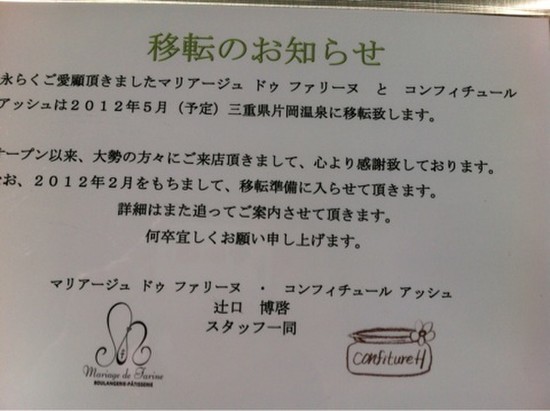 移転のお知らせ
永らくご愛願頂きましたマリアージュ ドゥ ファリーヌ と コンフィチュール
アッシュは２０１２年５月（予定）三重県片岡温泉に移転致します。
オープン以来、大勢の方々にご来店頂きまして、心より感謝致しております。
なお、２０１２年２月をもちまして、移転準備に入らせて頂きます。
詳細はまた追ってご案内させて頂きます。
何卒宜しくお願い申し上げます。
マリアージュ ドゥ ファリーヌ ・ コンフィチュール アッシュ
辻口 博啓
スタッフ一同
Mariage de Farine
BOULANGERIE-PÂTISSERIE
confiture H